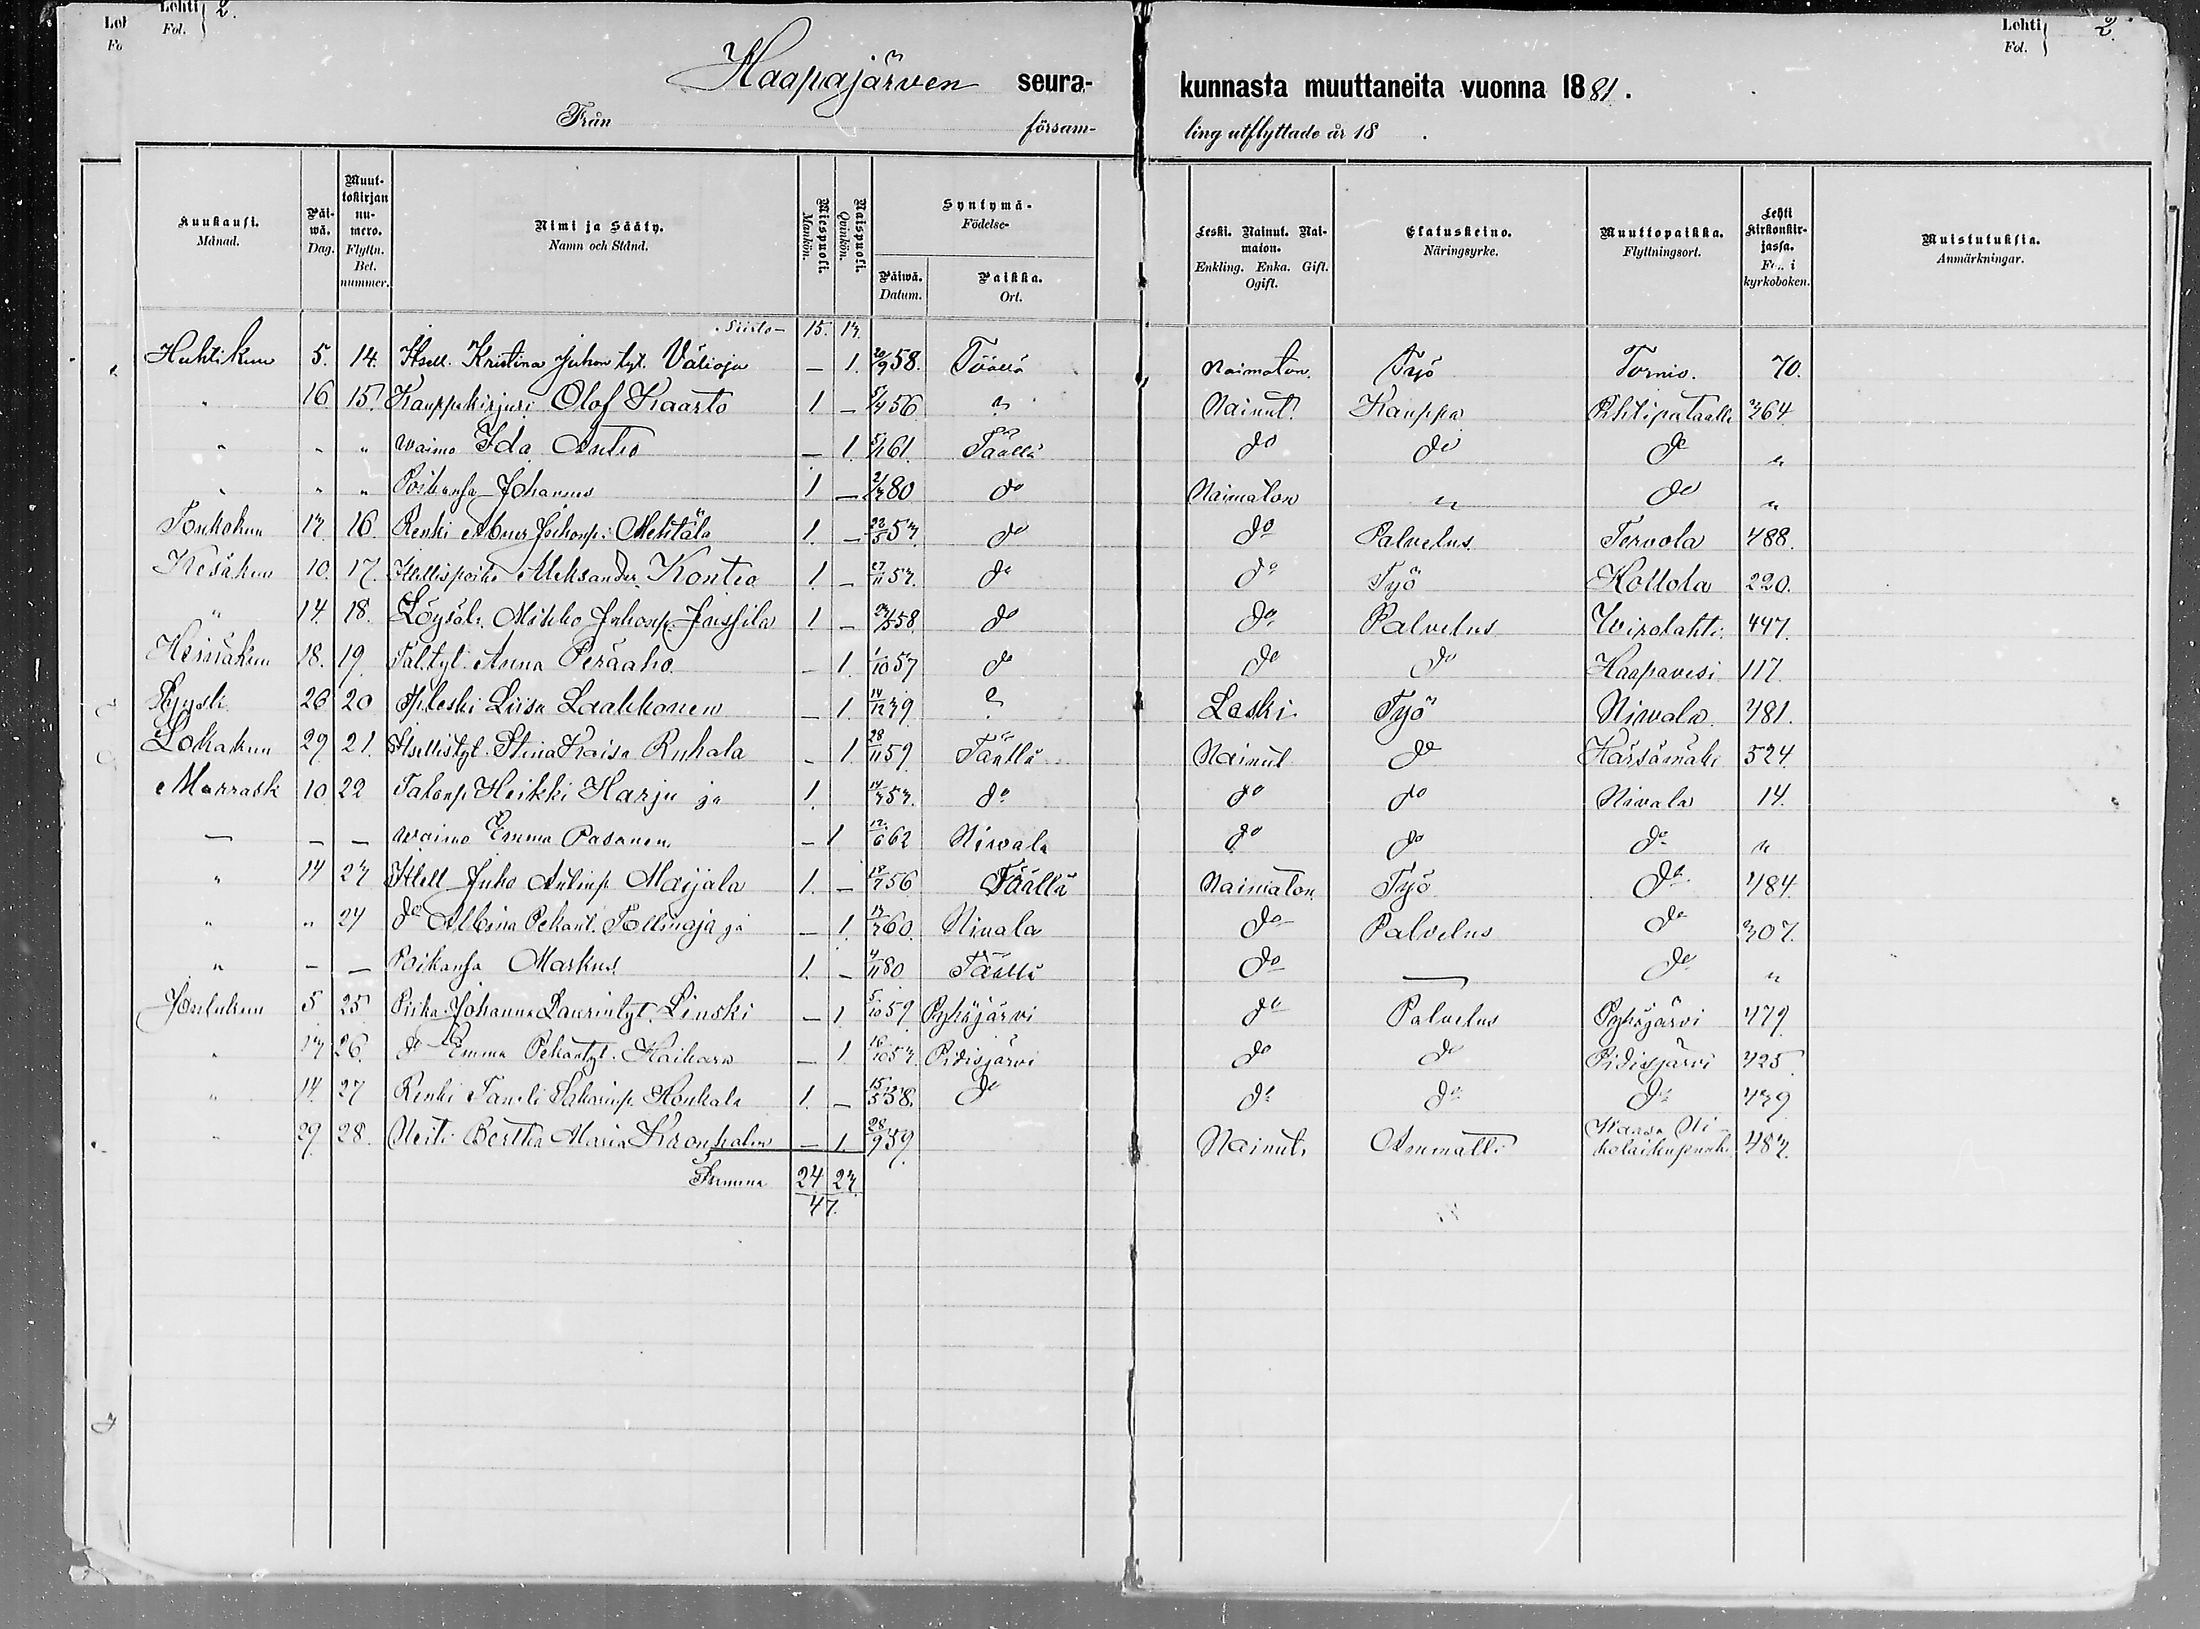 Lehti 2.
Fol.
Lehti 2.
Fol.
Haapajärven seura- kunnasta muuttaneita vuonna 1881.
Från försam- ling utflyttade år 18 .
Kuukausi. Månad.
Päiwä. Dag.
Muuttokirjan numero. Flyttn. Bet. nummer.
Nimi ja Sääty. Namn och Stånd.
Miespuoli. Mankön.
Naispuoli. Qvinkön.
Syntymä- Födelse-
Päiwä. Datum.
Paikka. Ort.
Leski. Nainut. Naimaton. Enkling. Enka. Gift. Ogift.
Elatuskeino. Näringsyrke.
Muuttopaikka. Flyttningsort.
Lehti Kirkonkirjassa. Fol. i kyrkoboken.
Muistutuksia. Anmärkningar.
Siirto- 15. 13.
Huhtikuu 5. 14. Itsell. Kristina Juhon tyt. Välioja — 1. 20/9 58. Täällä Naimaton. Työ Tornio. 70.
" 16 15. Kauppakirjuri Olof Kaarto 1 — 56 " Nainut. Kauppa 364
" " " waimo Ida Antio — 1. 61. Täällä do do do "
" " " Poikansa Johannes 1 — 80 do Naimaton " do "
Toukokuu 13. 16. Renki Mehtälä 1. — 22/5 53. do do Palvelus Tervola 488.
Kesäkuu 10. 17. Itsellispoika Aleksander Kontio 1 — 27/11 53. do do Työ Hollola 220.
" 14. 18. Löysäl. Mikko Juhonp. Jussila 1. — 58. do do Palvelus Wirolahti 447.
Heinäkuu 18. 19. Tal.tyt. Anna Peräaho. — 1. 1/10 57 do do do Haapavesi 117.
Syysk. 26 20 Itsleski Liisa Laakkonen — 1. 14/12 39 " Leski Työ Nivala. 481.
Lokakuu 29 21. Itsellistyt. Stina Kaisa Ruhala — 1. 28/11 59. Täällä Nainut do Kärsämäki 524
Marrask 10 22 Talonp Heikki Harju ja 1. 14/3 53. do do do Nivala 14.
— — — waimo Emma Pasanen. — 1 12/6 62 Nivala do do do "
" 14 23 Itsell Juho Antinp Maijala 1. — 56 Täällä Naimaton Työ do 484
" " 24 do Albina Pekant. Tollinoja ja — 1. 13/3 60. Nivala do Palvelus do 307.
" — — Poikansa Markus. 1. — 4/11 80 Täällä do — do "
Joulukuu 5 25 Piika Johanna Laurintyt. Linski — 1. 5/10 59. Pyhäjärvi do Palvelus Pyhäjärvi 479
" 13 26. do Emma Pekantyt. Haikara — 1 16/10 53. Pidisjärvi do do Pidisjärvi 425
" 14. 27 Renki Taneli Sakarinp. Honkala 1. — 15/5 58. do do do do 439
" 29. 28. Neiti Bertha Maria Kronholm — 1. 28/9 59. Nainut. Ammatti 483.
Summa 24 23.
47.